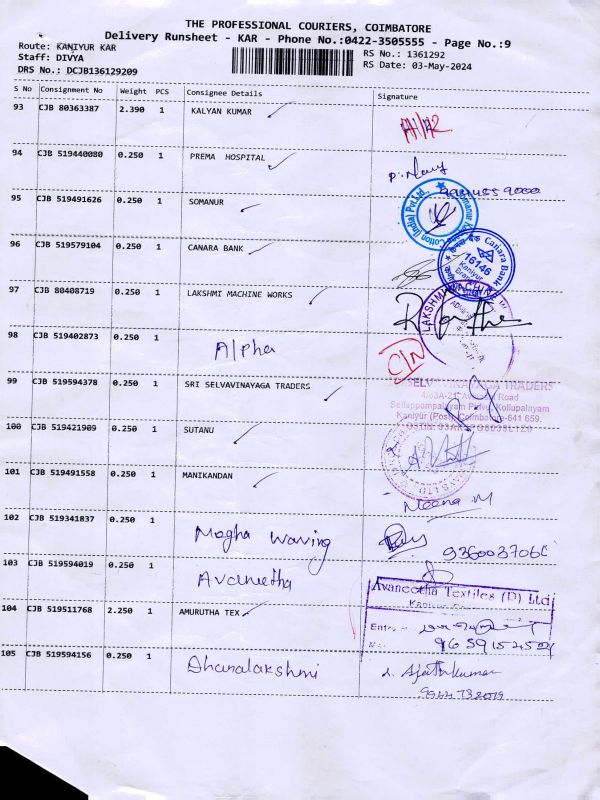 THE PROFESSIONAL COURIERS, COIMBATORE
Delivery Runsheet - KAR - Phone No.:0422-3505555 - Page No.:9
Route: KANIYUR KAR
RS No.: 1361292
Staff: DIVYA
RS Date: 03-May-2024
DRS No.: DCJB136129209
S No Consignment No Weight PCS Consignee Details Signature
93 CJB 80363387 2.390 1 KALYAN KUMAR
94 CJB 519440080 0.250 1 PREMA HOSPITAL
95 CJB 519491626 0.250 1 SOMANUR
Cotton (India) Pvt.Ltd.,
96 CJB 519579104 0.250 1 CANARA BANK
Canara Bank
16146
Kaniyur
97 CJB 80408719 0.250 1 LAKSHMI MACHINE WORKS
LAKSHMI MACHINE
98 CJB 519402873 0.250 1
Alpha
99 CJB 519594378 0.250 1 SRI SELVAVINAYAGA TRADERS
TRADERS
Road
Kollupalayam
Kaniyur (Post) Coimbatore-641 659.
100 CJB 519421909 0.250 1 SUTANU
101 CJB 519491558 0.250 1 MANIKANDAN
Meena M
102 CJB 519341837 0.250 1
Magha Waving
103 CJB 519594019 0.250 1
Avaneetha
Avaneetha Textiles (P) Ltd
104 CJB 519511768 2.250 1 AMURUTHA TEX
105 CJB 519594156 0.250 1
Dhanalakshmi
Ajithkumar